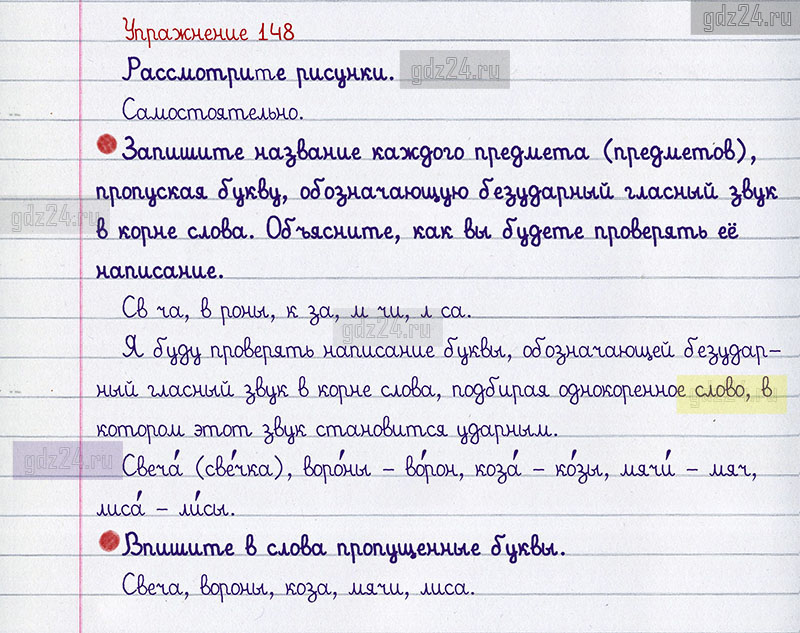 gdz24.ru
Упражнение 148
Рассмотрите рисунки.
gdz24.ru
Самостоятельно.
Запишите название каждого предмета (предметов),
пропуская букву, обозначающую безударный гласный звук
gdz24.ru
в корне слова. Объясните, как вы будете проверять её
написание.
Св ча, в роны, к за, м чи, л са.
gdz24.ru
Я буду проверять написание буквы, обозначающей безудар-
ный гласный звук в корне слова, подбирая однокоренное слово, в
gdz24.ru
котором этот звук становится ударным.
gdz24.ru
Свеча́ (све́чка), воро́ны - во́рон, коза́ - ко́зы, мячи́ - мяч,
лиса́ - ли́сы.
Впишите в слова пропущенные буквы.
Свеча, вороны, коза, мячи, лиса.